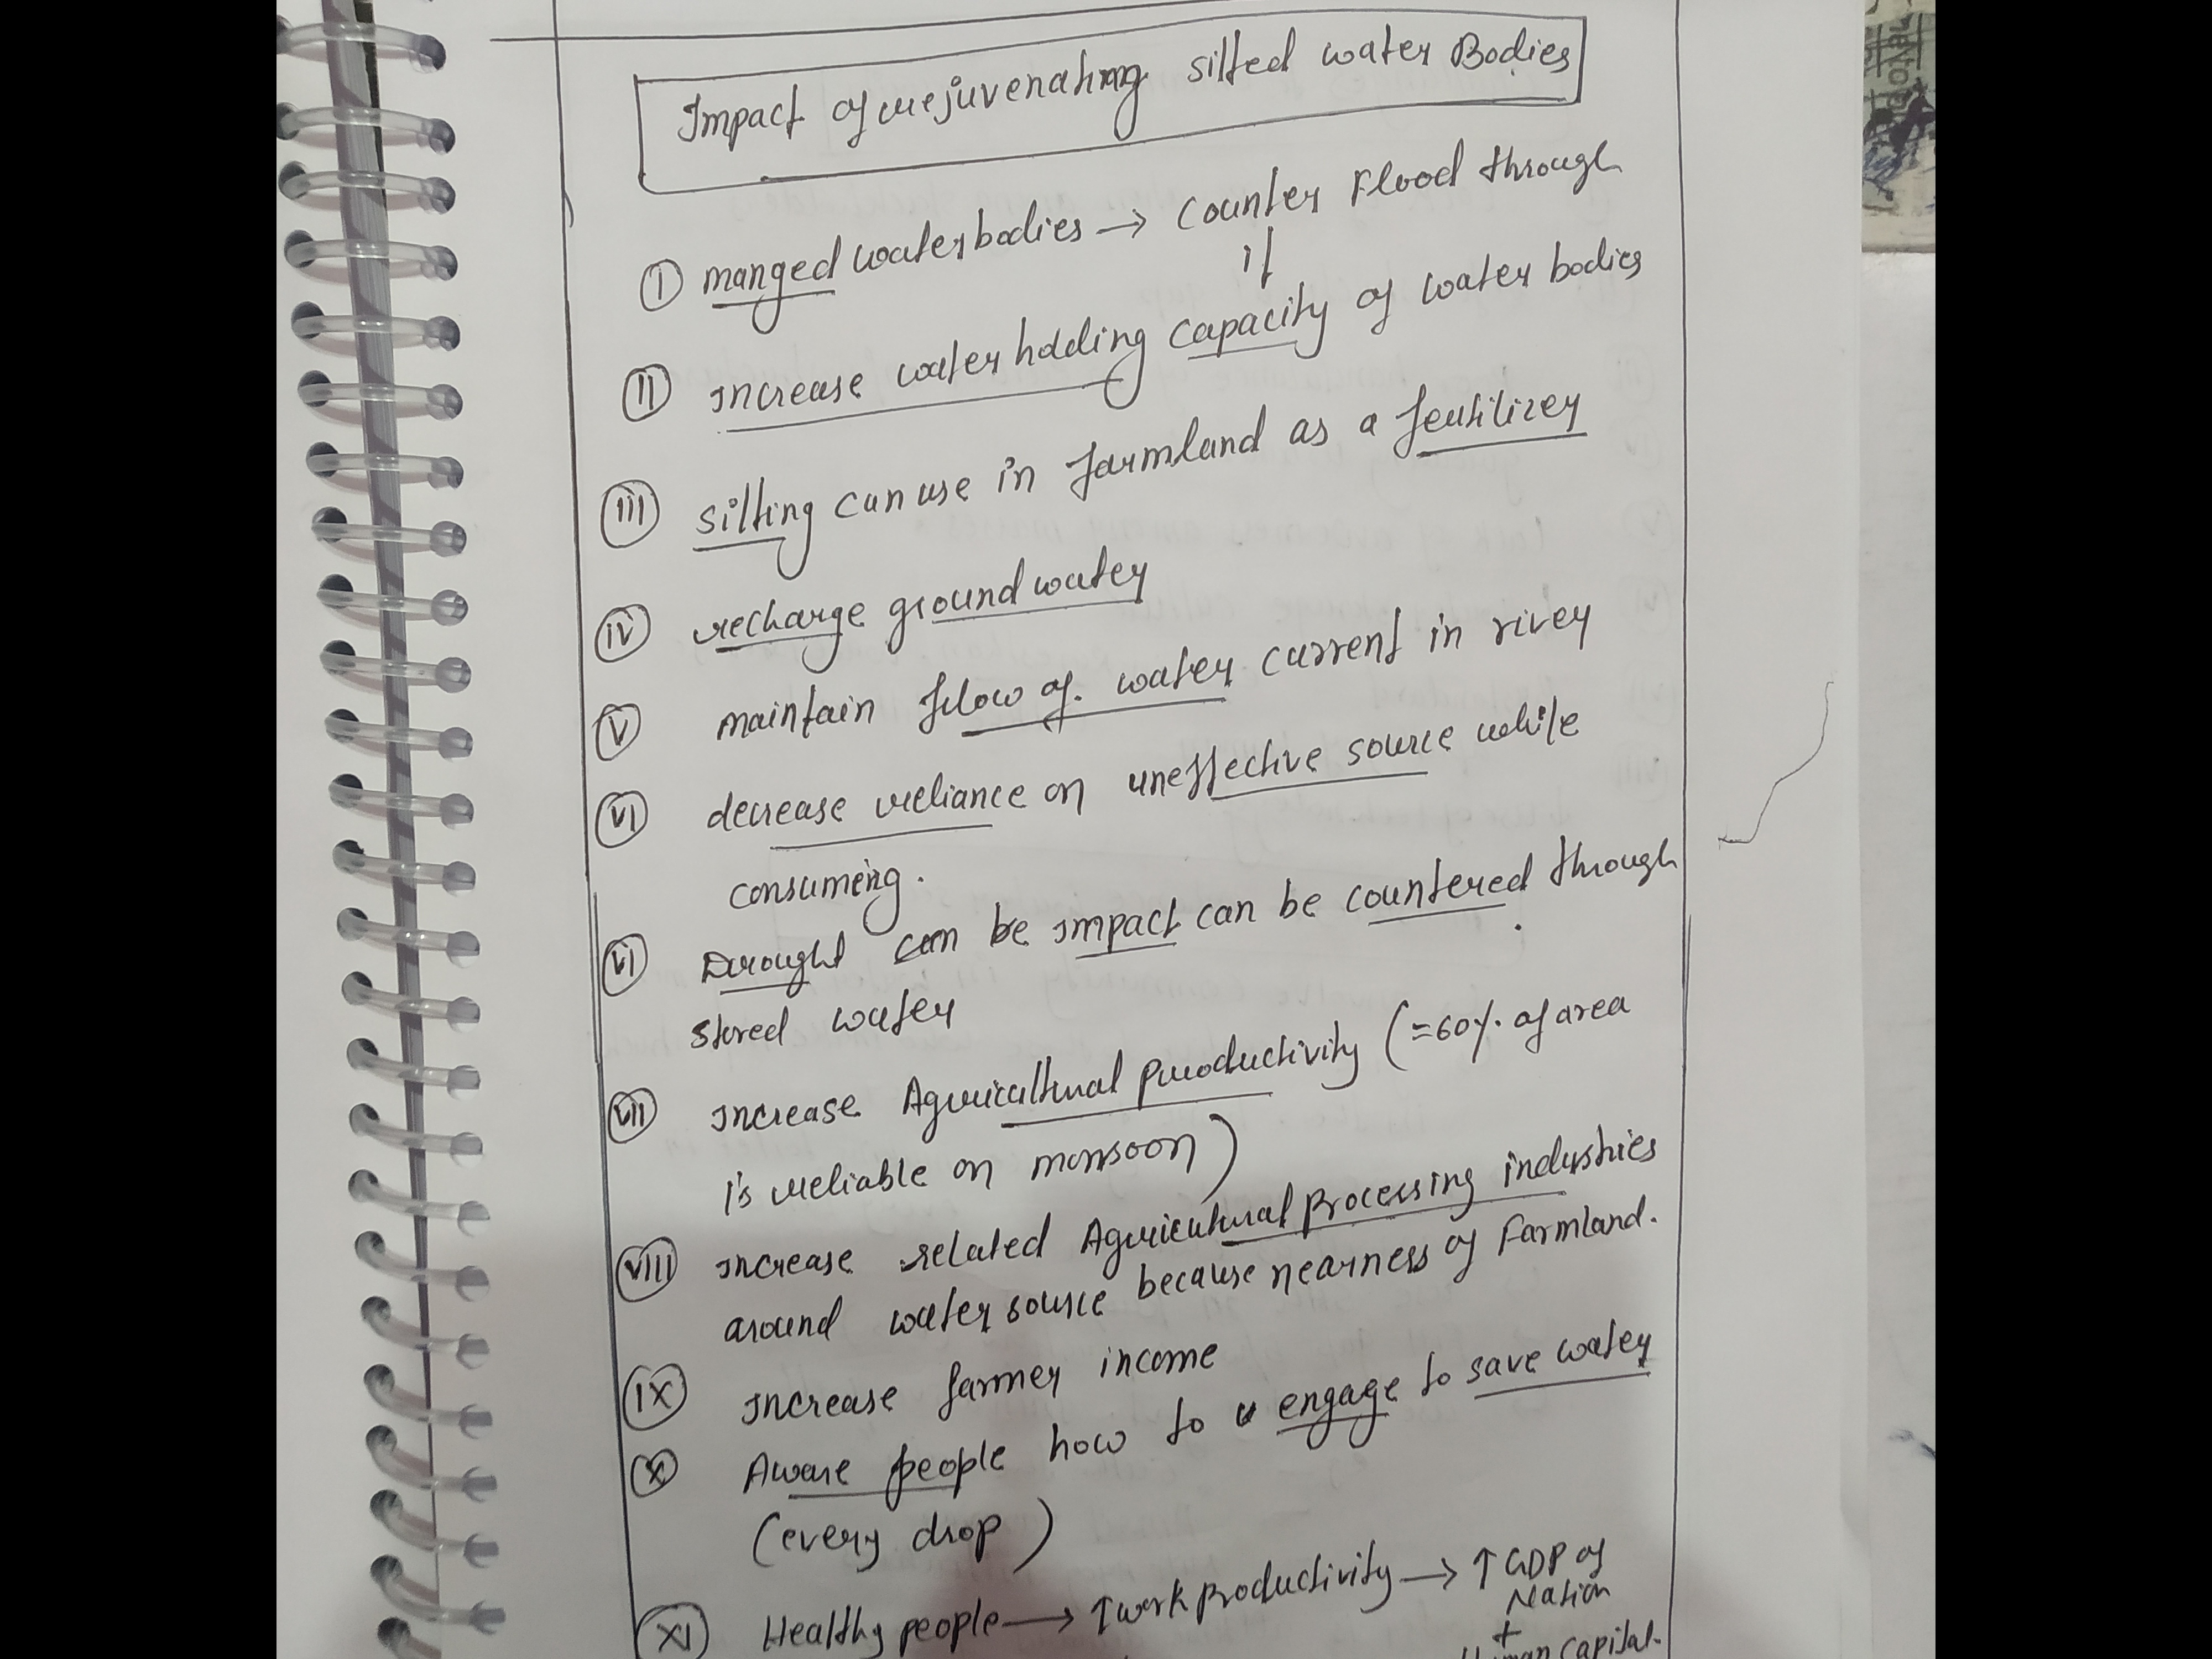 Impact of rejuvenating silted water Bodies
I manged waterbodies → counter Flood through
it
II Increase water holding capacity of water bodies
III silting can use in farmland as a fertilizer
IV recharge ground water
V maintain flow of water current in river
VI decrease reliance on uneffective source while
consuming.
VI Drought can be impact can be countered through
stored water
VII Increase Agricultural productivity (=60% of area
is reliable on monsoon)
VIII Increase related Agricultural processing industries
around water source because nearness of Farmland.
IX Increase farmer income
X Aware people how to engage to save water
(every drop)
XI Healthy people → ↑work productivity → ↑ GDP of
Nation
+
Human Capital.